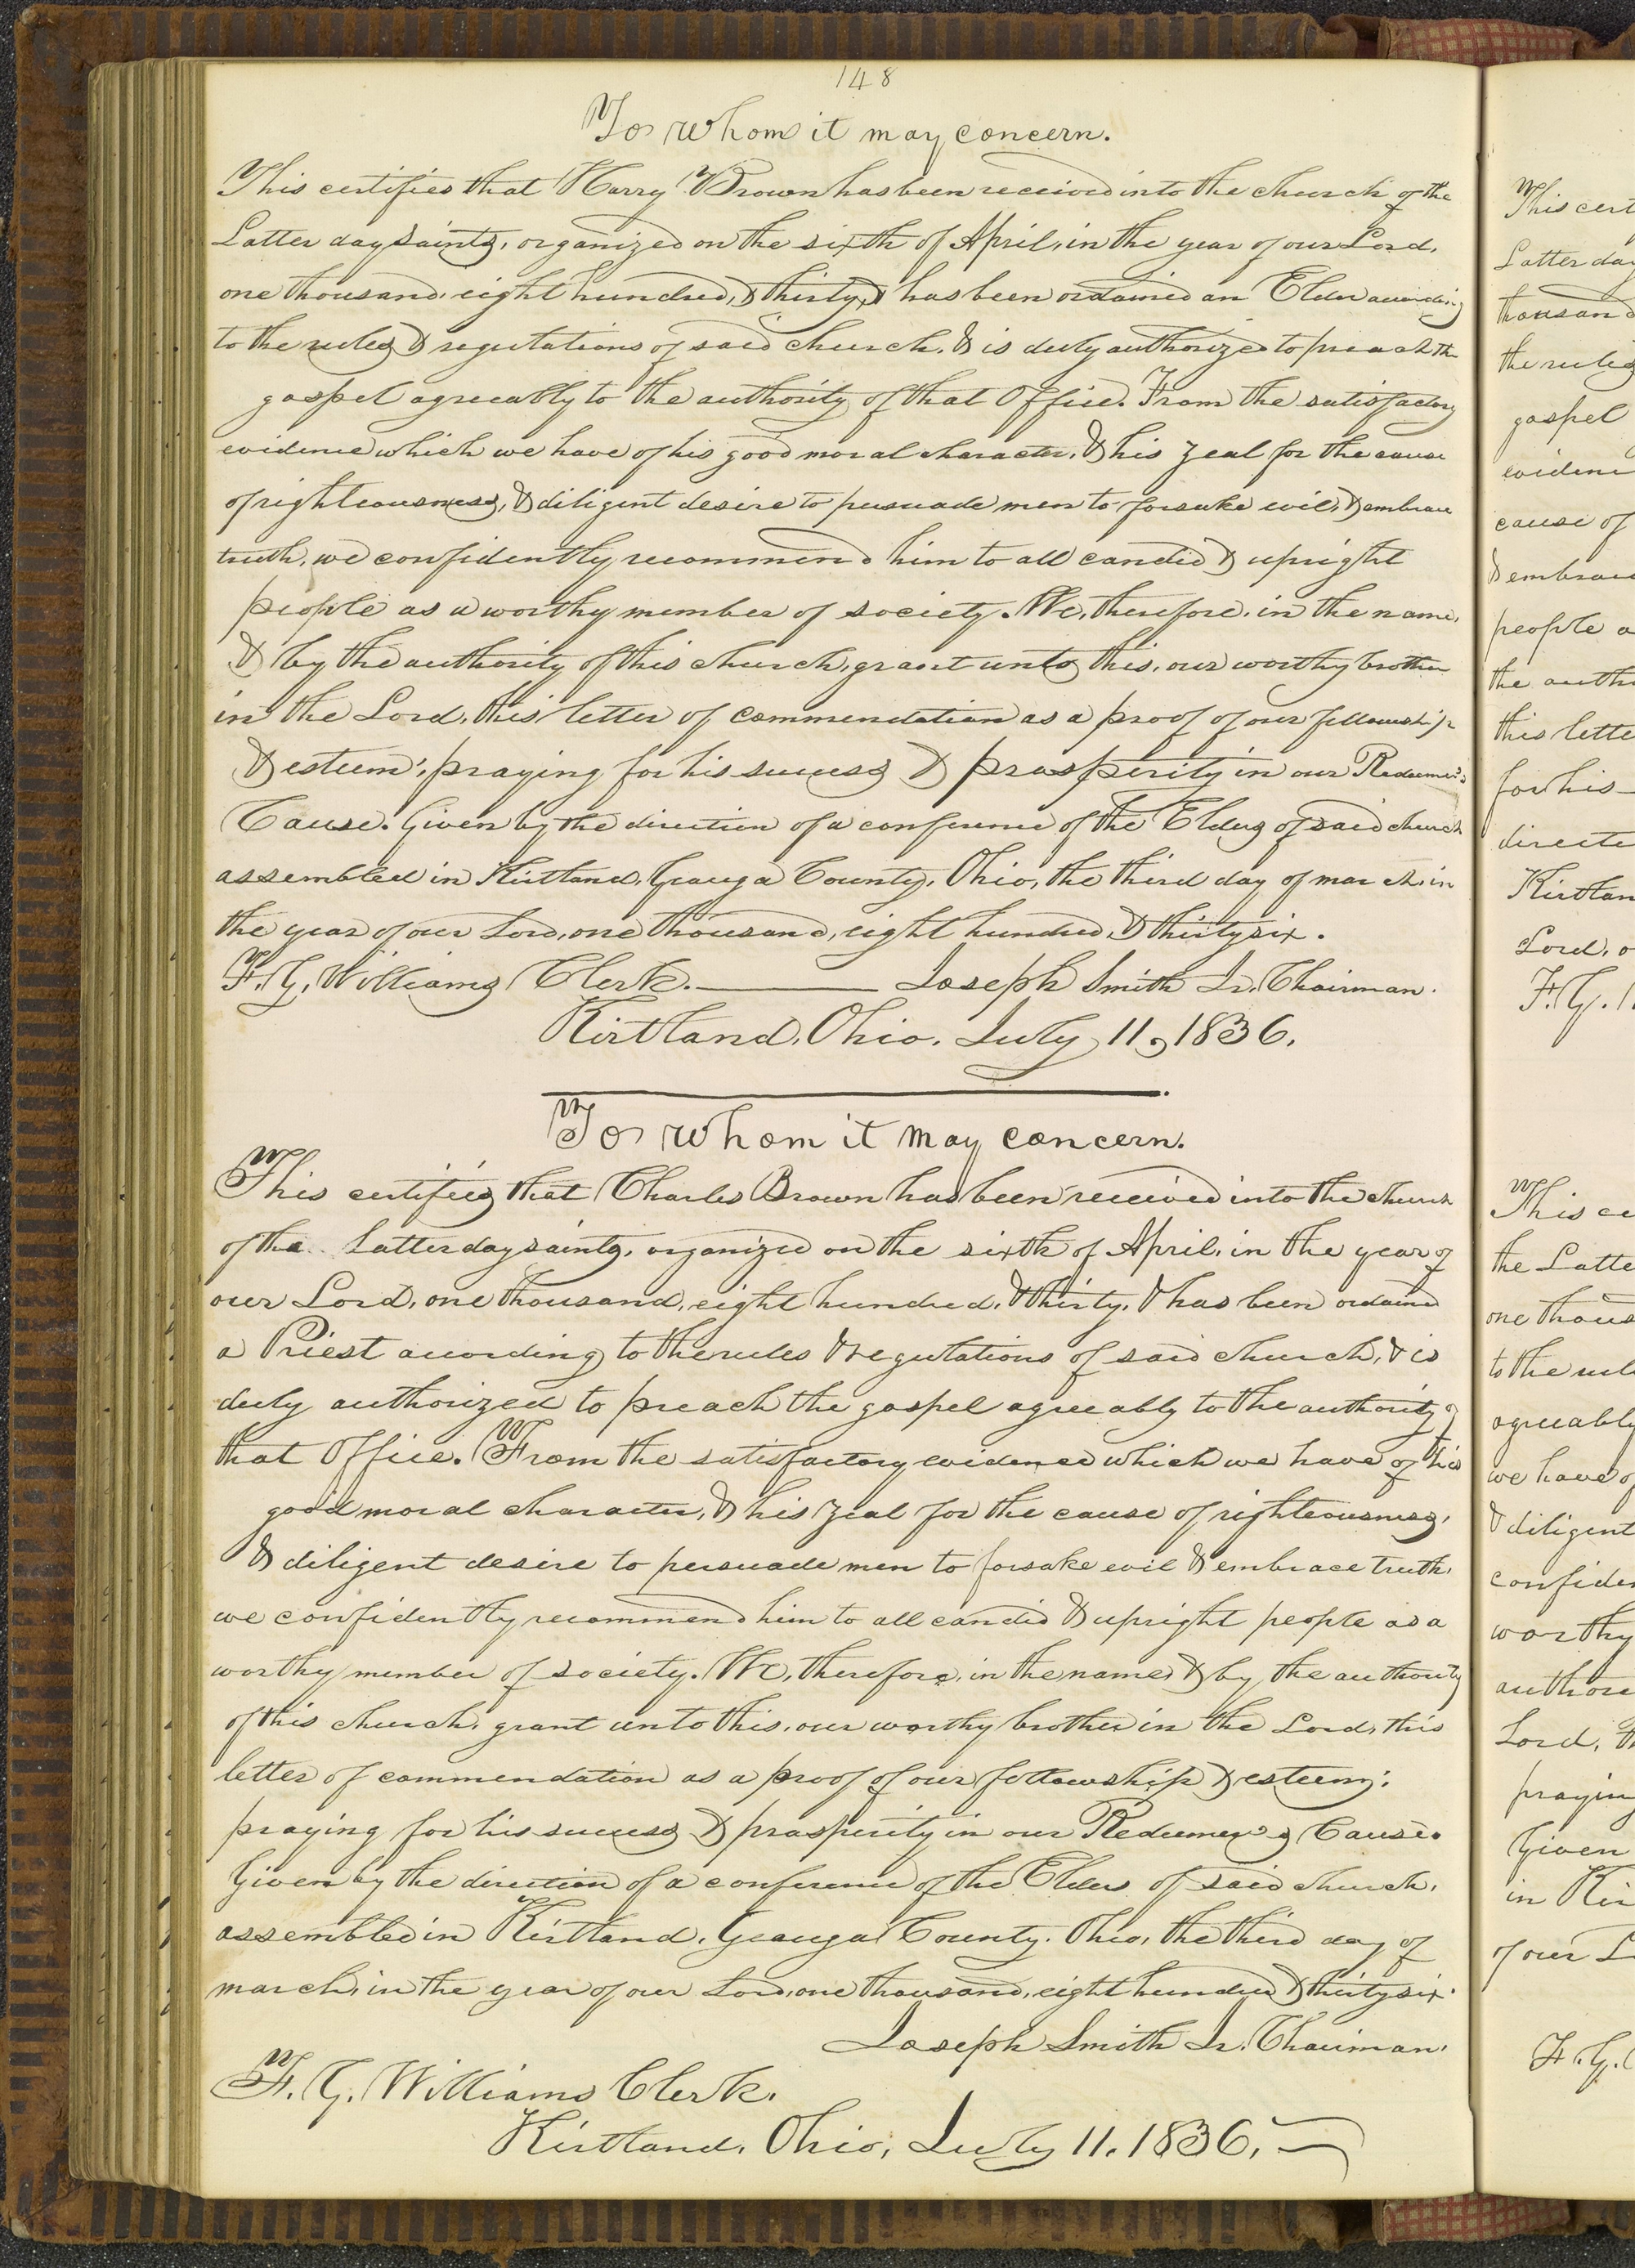 148
To whom it may concern.
This certifies that Harry Brown has been received into the church of the
Latter day saints, organized on the sixth of April, in the year of our Lord,
one thousand, eight hundred, & thirty, & has been ordained an Elder according
to the rules & regulations of said church, & is duly authorized to preach the
gospel agreeably to the authority of that Office. From the satisfactory
evidence which we have of his good moral character, & his zeal for the cause
of righteousness, & diligent desire to persuade men to forsake evil, & embrace
truth, we confidently recommend him to all candid & upright
people as a worthy member of society. We, therefore, in the name,
& by the authority of this church, grant unto this, our worthy brother
in the Lord, this letter of commendation as a proof of our fellowship
& esteem: praying for his success & prosperity in our Redeemer's
Cause. Given by the direction of a conference of the Elders of said church
assembled in Kirtland, Geauga County, Ohio, the third day of march, in
the year of our Lord, one thousand, eight hundred, & thirty six.
F. G. Williams Clerk. Joseph Smith Jr. Chairman.
Kirtland, Ohio, July 11, 1836.
To whom it may concern.
This certifies that Charles Brown has been received into the church
of the Latter day saints, organized on the sixth of April, in the year of
our Lord, one thousand, eight hundred, & thirty, & has been ordained
a Priest according to the rules & regulations of said church, & is
duly authorized to preach the gospel agreeably to the authority of
that Office. From the satisfactory evidence which we have of his
good moral character, & his zeal for the cause of righteousness,
& diligent desire to persuade men to forsake evil & embrace truth,
we confidently recommend him to all candid & upright people as a
worthy member of society. We, therefore, in the name, & by the authority
of this church, grant unto this, our worthy brother in the Lord, this
letter of commendation as a proof of our fellowship & esteem:
praying for his success & prosperity in our Redeemer's Cause.
Given by the direction of a conference of the Elders of said church,
assembled in Kirtland, Geauga County, Ohio, the third day of
march, in the year of our Lord, one thousand, eight hundred & thirty six.
Joseph Smith Jr. Chairman.
F. G. Williams Clerk.
Kirtland, Ohio, July 11, 1836.
This cert
Latter day
thousand
the rules
gospel
evidenc
cause of
& embrace
people a
the auth
this lette
for his
directi
Kirtlan
Lord, o
F. G.
This ce
the Latte
one thous
to the rul
agreeably
we have of
& diligent
confiden
worthy
author
Lord, th
praying
Given
in Kir
of our L
F. G.